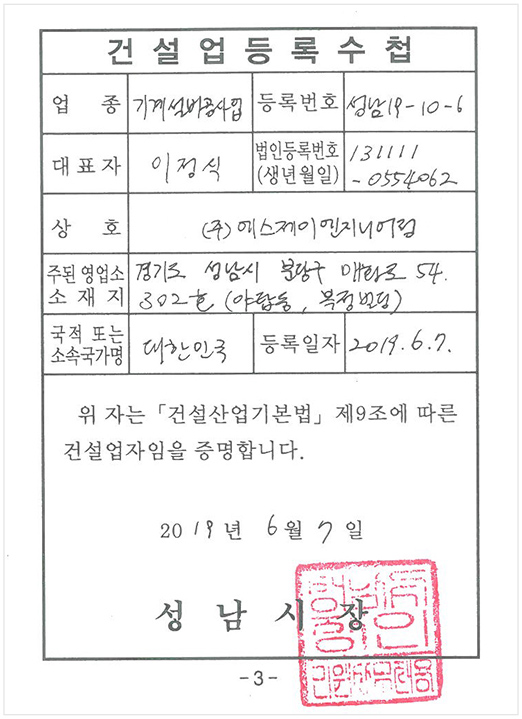 건설업등록수첩
업 종 기계설비공사업 등록번호 성남19-10-6
대표자 이정식 법인등록번호 (생년월일) 131111
-0554062
상 호 (주)에스제이엔지니어링
주된 영업소 소재지 경기도 성남시 분당구 매화로 54.
302호 (야탑동, 복정빌딩)
국적 또는 소속국가명 대한민국 등록일자 2019.6.7.
위 자는「건설산업기본법」제9조에 따른
건설업자임을 증명합니다.
2019년 6월 7일
성남시장
-3-